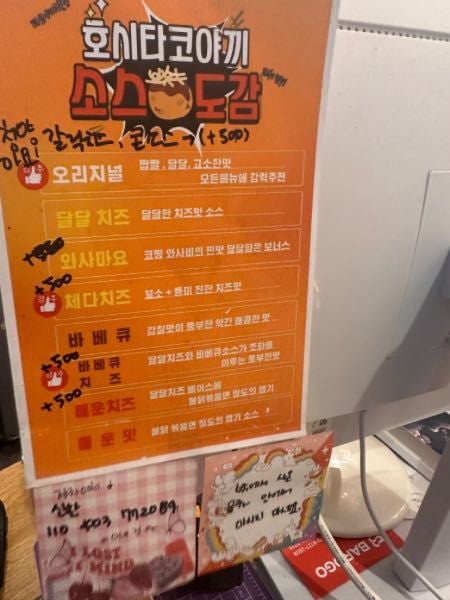 호시타코야끼
소스 도감
갈릭치즈, 콘치즈 → (+500)
오리지널 짭짤, 달달, 고소한맛
모든메뉴에 강력추천
달달 치즈 달달한 치즈맛 소스
와사마요 코찡 와사비의 찐맛 달달함은 보너스
+500
체다치즈 꼬소 + 풍미 진한 치즈맛
바베큐 감칠맛이 풍부한 약간 매콤한 맛
+500
바베큐
치즈 달달치즈와 바베큐소스가 조화를
이루는 풍부한맛
+500
매운치즈 달달치즈 베이스에
불닭볶음면 정도의 맵기
매운 맛 불닭 볶음면 정도의 맵기 소스
신한
110
밖에서 사온
음료는 안에서
마시지 마세요.
LOST
MIND
BAROGO